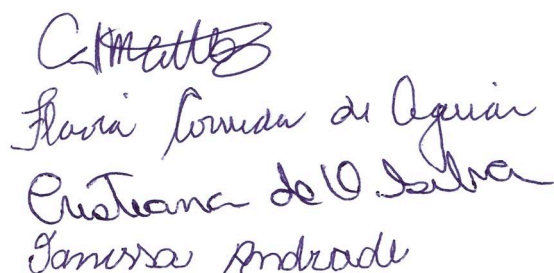 Flavia de Aguiar
Cristiana de O. Silva
Vanessa Andrade